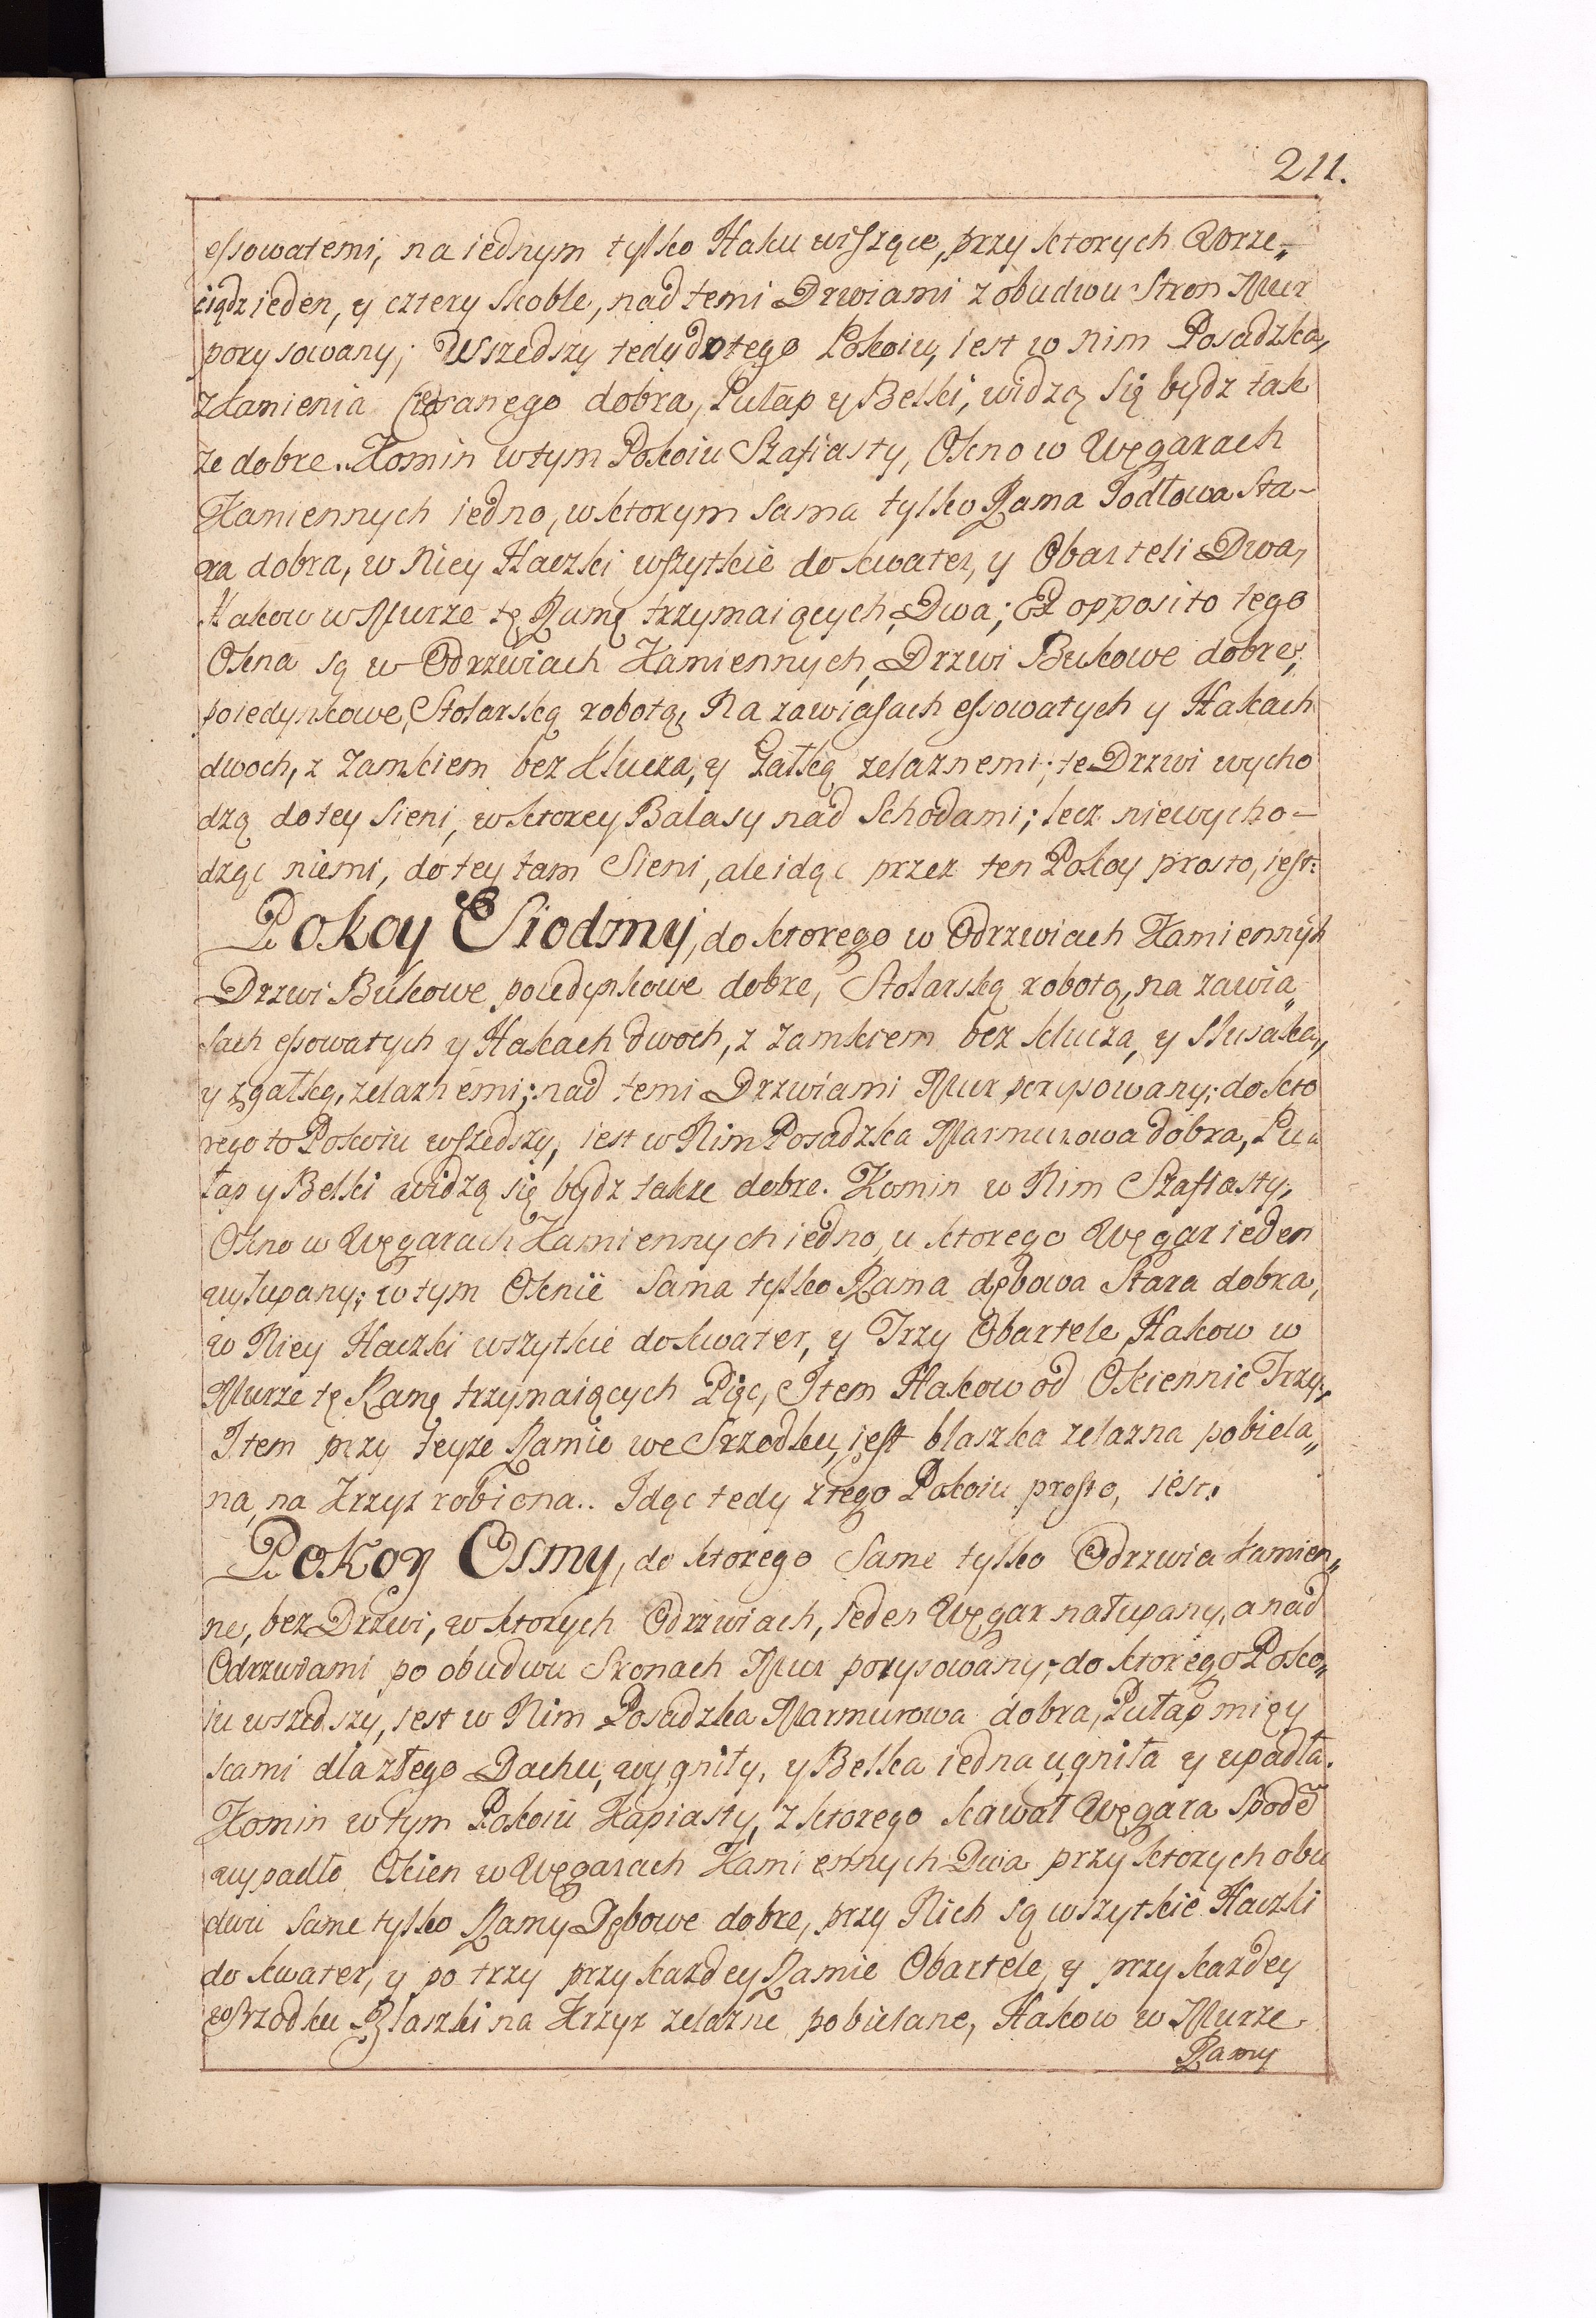 211.
essowatemi, na iednym tylko Haku wiszące, przy ktorych Wrze„
ciądz ieden, y cztery skoble, nad temi Drwiami z obudwu Stron Mur
porysowany; Wszedszy tedy do tego Pokoiu, iest w nim Posadzka,
z Kamienia Ciosanego dobra, Pułap y Belki, widzą się bydz tak
ze dobre. Komin w tym Pokoiu Szafiasty, Okno w Węgarach
Kamiennych iedno, w ktorym sama tylko Rama Jodłowa Sta-
ra dobra, w Niey Haczki wszytkie do kwater, y Obarteli Dwa,
Hakow w Murze tę Ramę trzymaiących Dwa; Ex opposito tego
Okna są w Odrzwiach Kamiennych, Drzwi Bukowe dobre,
poiedynkowe, Stolarską robotą, Na zawiasach essowatych y Hakach
dwoch, z zamkiem bez Klucza, y Gałką zelaznemi; te Drzwi wycho
dzą do tey Sieni, w ktorey Balasy nad Schodami; lecz niewycho-
dząc niemi, do tey tam Sieni, ale idąc przez ten Pokoy prosto, iest:
Pokoy Siodmy, do ktorego w Odrzwiach Kamiennych
Drzwi Bukowe poiedynkowe dobre, Stolarską robotą, na zawia„
sach essowatych y Hakach dwoch, z zamkiem bez klucza, y
y z gałką, zelaznemi; nad temi Drzwiami Mur porysowany; do kto
rego to Pokoiu wszedszy, iest w Nim Posadzka Marmurowa dobra, Pu„
łap y Belki widzą się bydz takze dobre. Komin w Nim Szafiasty,
Okno w Węgarach Kamiennych iedno, u ktorego Węgar ieden
wyłupany; w tym Oknie sama tylko Rama dębowa Stara dobra,
w Niey Haczki wszytkie do kwater, y Trzy Obartele, Hakow w
Murze tę Ramę trzymaiących Pięc, Item Hakow od Okiennic Trzy,
Item przy teyze Ramie we Srzodku, iest blaszka zelazna pobiela„
na, na Krzyz robiona.. Idąc tedy z tego Pokoiu prosto, iest:
Pokoy Osmy, do ktorego same tylko Odrzwia kamien„
ne, bez Drzwi, w ktorych Odrzwiach, ieden Węgar nałupany, a nad
Odrzwiami po obudwu Stronach Mur porysowany; do ktorego Poko„
iu wszedszy, iest w Nim Posadzka Marmurowa dobra, Pułap mięy
scami dla złego Dachu, wygniły, y Belka iedna ugniła y upadła.
Komin w tym Pokoiu Kapiasty, z ktorego kawał Węgara Spodem
wypadło. Okien w Węgarach Kamiennych Dwa przy ktorych obu
dwu same tylko Ramy Dębowe dobre, przy Nich są wszytkie Haczki
do kwater, y po trzy przy kazdey Ramie Obartele, y przy kazdey
w Srzodku Blaszki na Krzyz zelazne pobielane, Hakow w Murze
Ramy